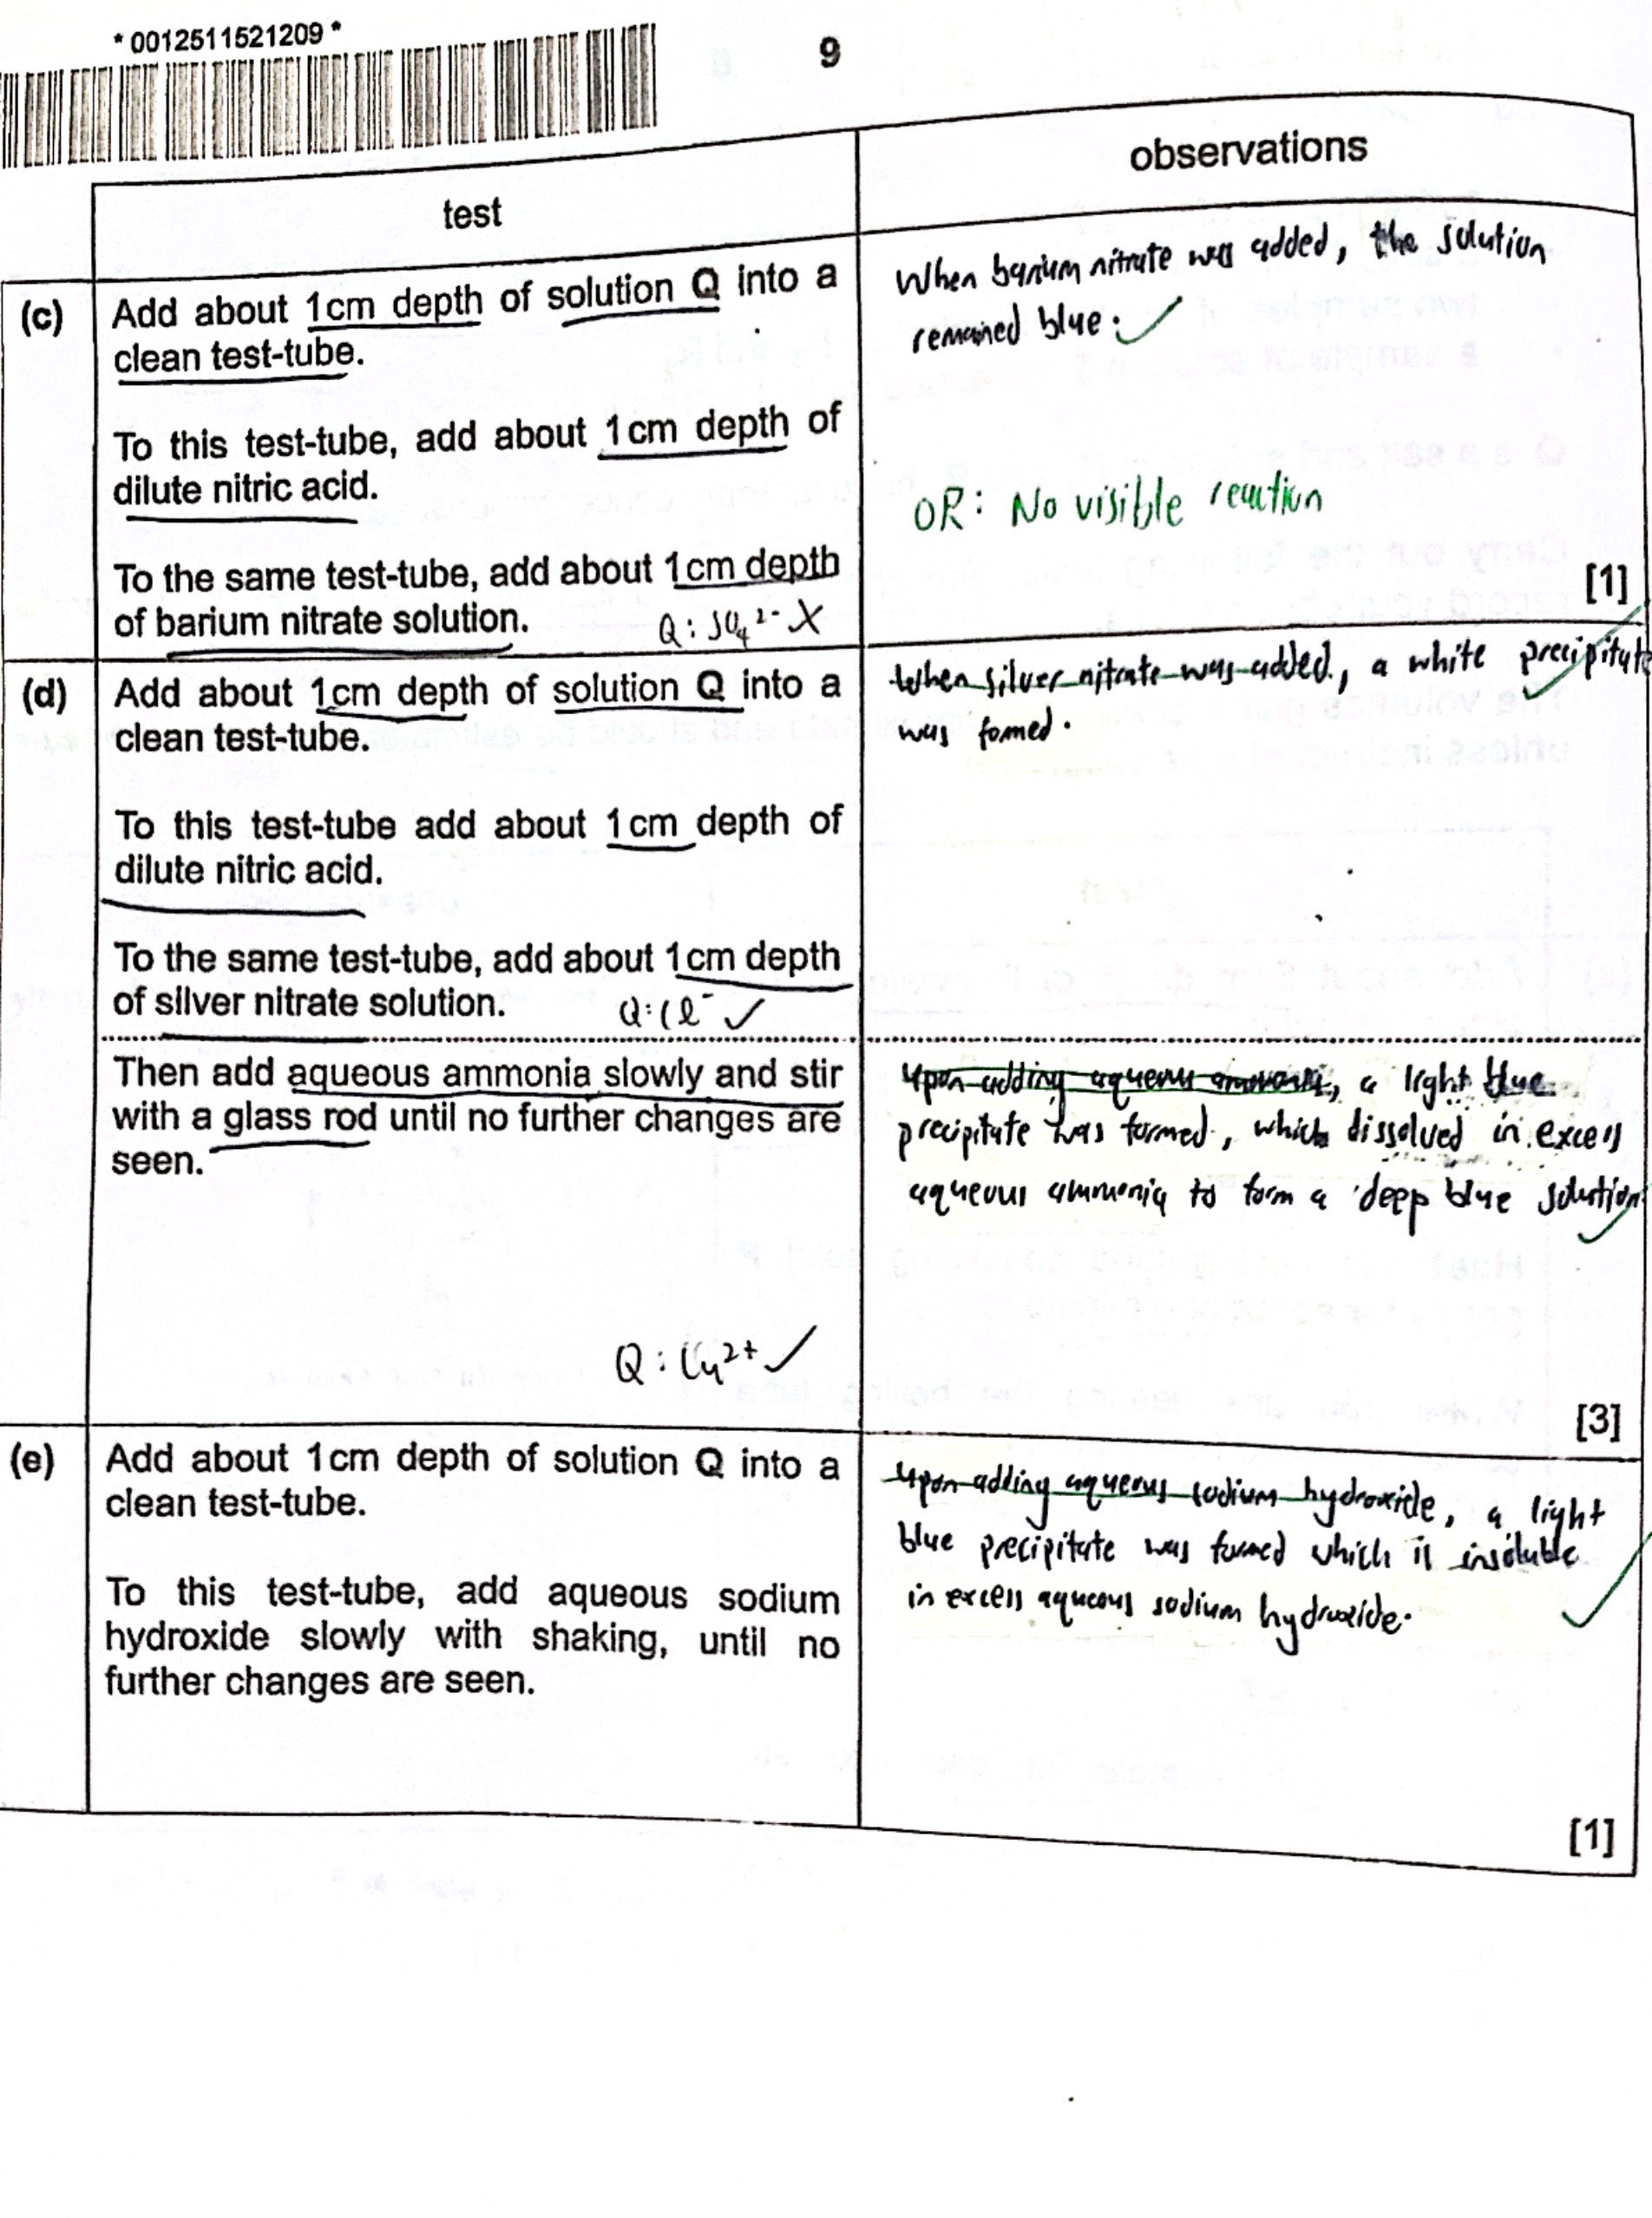 *0012511521209*
9
test
observations
(c)
Add about 1cm depth of solution Q into a
clean test-tube.
To this test-tube, add about 1cm depth of
dilute nitric acid.
To the same test-tube, add about 1cm depth
of barium nitrate solution.
Q: SO₄²⁻ X
When barium nitrate was added, the solution
remained blue. ✓
OR: No visible reaction
[1]
(d)
Add about 1cm depth of solution Q into a
clean test-tube.
To this test-tube add about 1cm depth of
dilute nitric acid.
To the same test-tube, add about 1cm depth
of silver nitrate solution.
Q: Cl⁻ ✓
When silver nitrate was added, a white precipitate
was formed.
Then add aqueous ammonia slowly and stir
with a glass rod until no further changes are
seen.
Q: Cu²⁺ ✓
upon adding aqueous ammonia, a light blue
precipitate was formed, which dissolved in excess
aqueous ammonia to form a deep blue solution
[3]
(e)
Add about 1cm depth of solution Q into a
clean test-tube.
To this test-tube, add aqueous sodium
hydroxide slowly with shaking, until no
further changes are seen.
upon adding aqueous sodium hydroxide, a light
blue precipitate was formed which is insoluble
in excess aqueous sodium hydroxide.
[1]